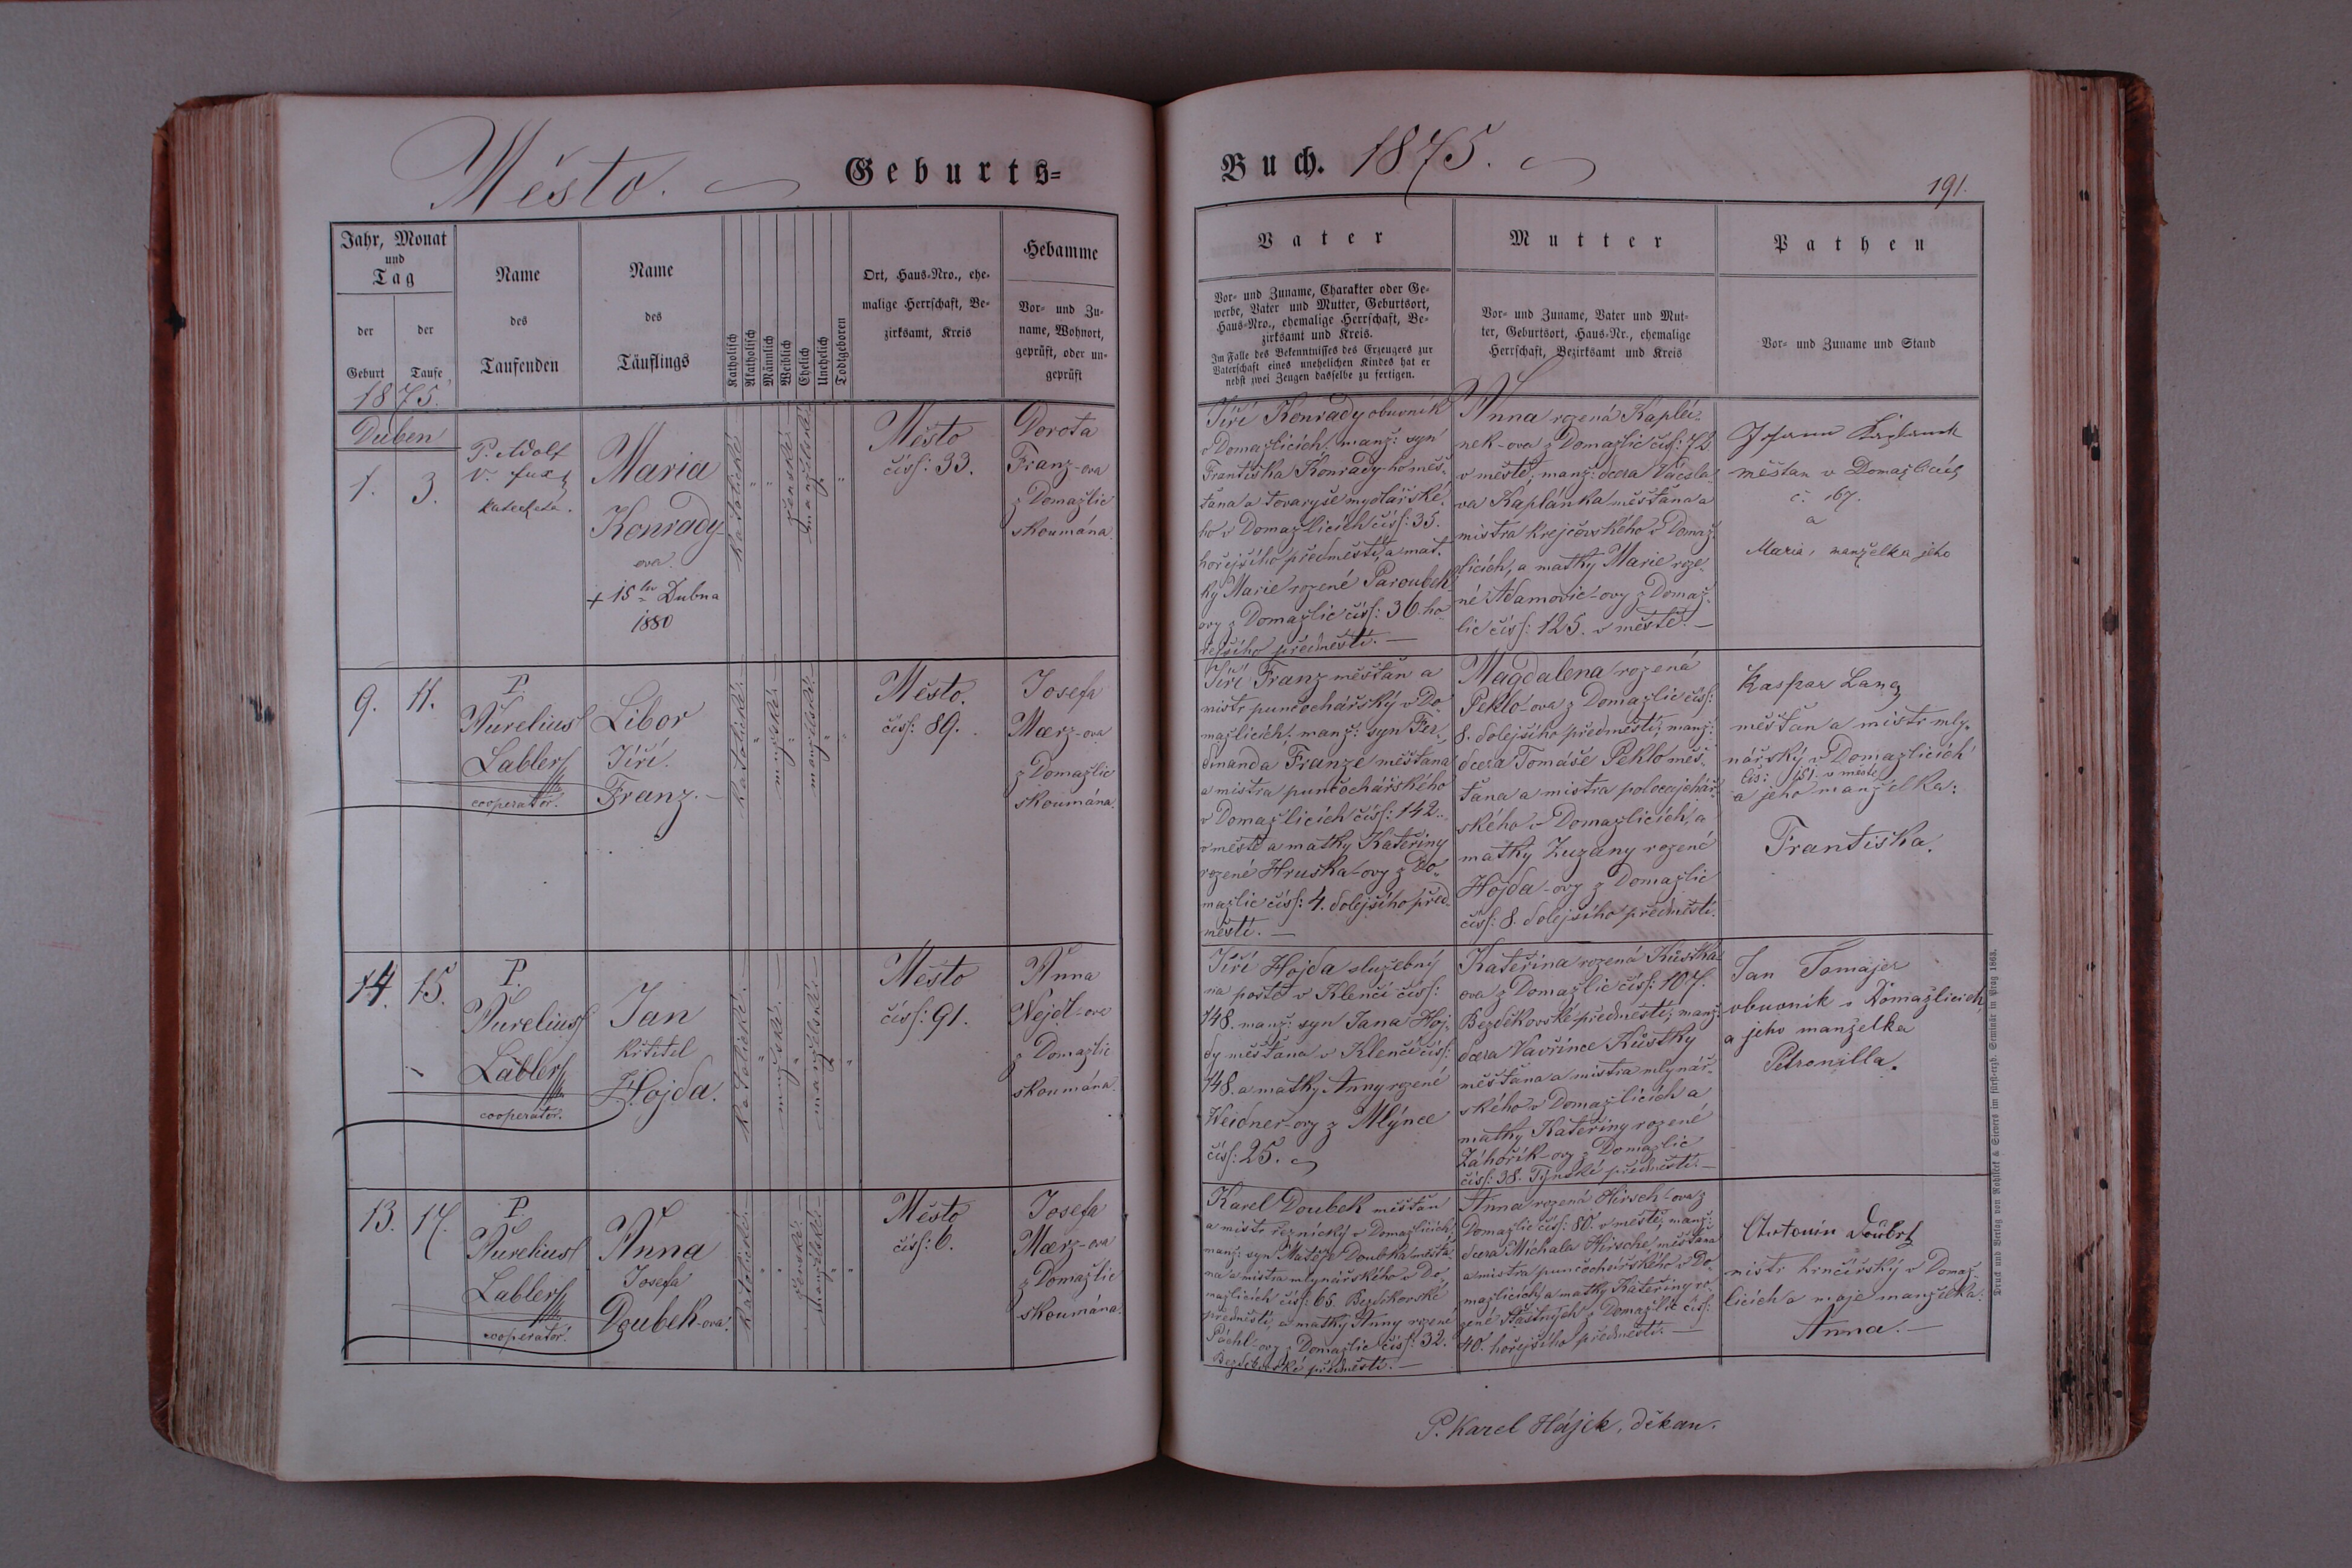 Město. Geburts=
Buch. 1875.
191.
Jahr, Monat
und
Tag
der
Geburt
der
Taufe
Name
des
Taufenden
Name
des
Täuflings
Katholisch
Akatholisch
Männlich
Weiblich
Ehelich
Unehelich
Todtgeboren
Ort, Haus-Nro., ehe-
malige Herrschaft, Be-
zirksamt, Kreis
Hebamme
Vor- und Zu-
name, Wohnort,
geprüft, oder un-
geprüft
Vater
Vor- und Zuname, Charakter oder Ge-
werbe, Vater und Mutter, Geburtsort,
Haus-Nro., ehemalige Herrschaft, Be-
zirksamt und Kreis.
Im Falle des Bekenntnisses des Erzeugers zur
Vaterschaft eines unehelichen Kindes hat er
nebst zwei Zeugen dasselbe zu fertigen.
Mutter
Vor- und Zuname, Vater und Mut-
ter, Geburtsort, Haus-Nr., ehemalige
Herrschaft, Bezirksamt und Kreis
Pathen
Vor- und Zuname und Stand
1875.
Duben
1.
3.
P. Adolf
katecheta.
Maria
Konrady-
ova.
+ 15 Dubna
1880
katolické
"
"
ženské
manželské
"
Město
čísl: 33.
Dorota
Franz-ova
z Domažlic
skoumána.
Jiří Konrady obuvník
v Domažlicích, manž: syn
Františka Konrady-ho měš-
ťana a tovaryše mydlářské-
ho v Domažlicích čísl: 35.
hořejšího předměstí, a mat-
ky Marie rozené Paroubek-
ovy z Domažlic čísl: 36. ho-
řejšího předměstí. —
Anna rozená Kaplá-
nek-ova z Domažlic čísl: 72
v městě, manž: dcera Václa-
va Kaplánka měšťana a
mistra krejčovského v Domaž-
licích, a matky Marie roze-
né Adamovic-ovy z Domaž-
lic čísl: 125. v městě. —
měštan v Domažlicích
č. 167.
a
Maria, manželka jeho
9.
11.
P.
Aurelius
Labler
cooperator.
Libor
Jiří
Franz. —
katolické
"
mužské
"
manželské
"
"
Město.
čísl: 89.
Josefa
Mærz-ova
z Domažlic
skoumána.
Jiří Franz měšťan a
mistr punčochářský v Do-
mažlicích, manž: syn Fer-
dinanda Franze měšťana
a mistra punčochářského
v Domažlicích čísl: 142.
v městě a matky Kateřiny
rozené Hruška-ovy z Do-
mažlic čísl: 4. dolejšího před-
městí. —
Magdalena rozená
Peklo-ova z Domažlic čísl:
8. dolejšího předměstí, manž:
dcera Tomáše Peklo měš-
ťana a mistra
ského v Domažlicích, a
matky Zuzany rozené
Hojda-ovy z Domažlic
čísl: 8. dolejšího předměstí.
Kaspar Lang
měšťan a mistr mly-
nářský v Domažlicích
čís: 151. v městě
a jeho manželka:
Františka.
14.
15.
P.
Aurelius
Labler
cooperator.
Jan
křtitel
Hojda.
katolické
"
mužské
"
manželské
"
"
Město
čísl: 91.
Anna
Nejdl-ova
z Domažlic
skoumána.
Jiří Hojda služebný
na poště v Klenčí čísl:
148. manž: syn Jana Hoj-
dy měšťana v Klenčí čísl:
148. a matky Anny rozené
Weidner-ovy z Mlýnce
čísl: 25.
Kateřina rozená Kůstka-
ova z Domažlic čísl: 107.
Bezděkovské předměstí, manž:
dcera Vavřince Kůstky
měšťana a mistra mlynář-
ského v Domažlicích a
matky Kateřiny rozené
Záhořík-ovy z Domažlic
čísl: 38. Týnské předměstí. —
Jan Tomajer
obuvník v Domažlicích
a jeho manželka
Petronilla.
13.
17.
P.
Aurelius
Labler
cooperator.
Anna
Josefa
Doubek-ova.
katolické
"
"
ženské
manželské
"
"
Město
čísl: 6.
Josefa
Mærz-ova
z Domažlic
skoumána.
Karel Doubek měšťan
a mistr řeznický v Domažlicích,
manž: syn Matěje Doubka měšťa-
na a mistra mlynářského v Do-
mažlicích čísl: 65. Bezděkovské
předměstí, a matky Anny rozené
Páchl-ovy z Domažlic čísl: 32.
Bezděkovské předměstí. —
Anna rozená Hirsch-ova z
Domažlic čísl: 80. v městě, manž:
dcera Michala Hirsche, měšťana
a mistra punčochářského v Do-
mažlicích, a matky Kateřiny ro-
zené Šťastných z Domažlic čísl:
40. hořejšího předměstí. —
Antonín
mistr hrnčířský v Domaž-
licích a moje manželka:
Anna. —
P. Karel Hájek, děkan.
Druck und Verlag von Rohliček & Sievers im fürst-erzb. Seminär in Prag 1863.